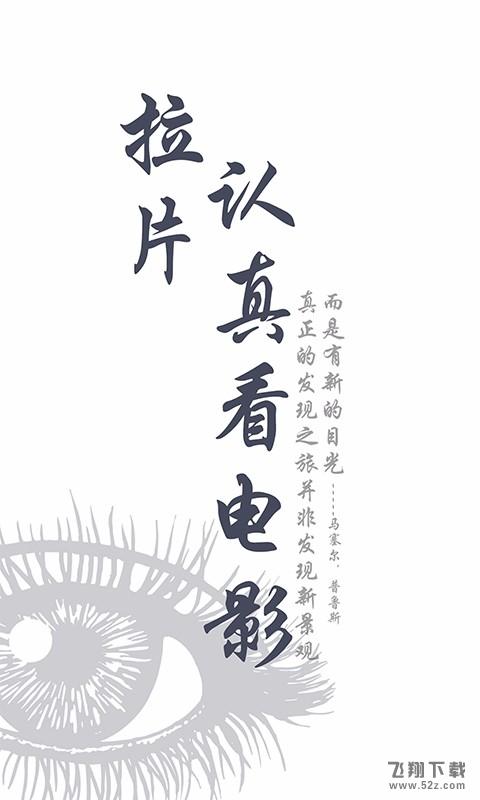 拉片
认真看电影
真正的发现之旅并非发现新景观
而是有新的目光-----马塞尔．普鲁斯
飞翔下载
www.52z.com